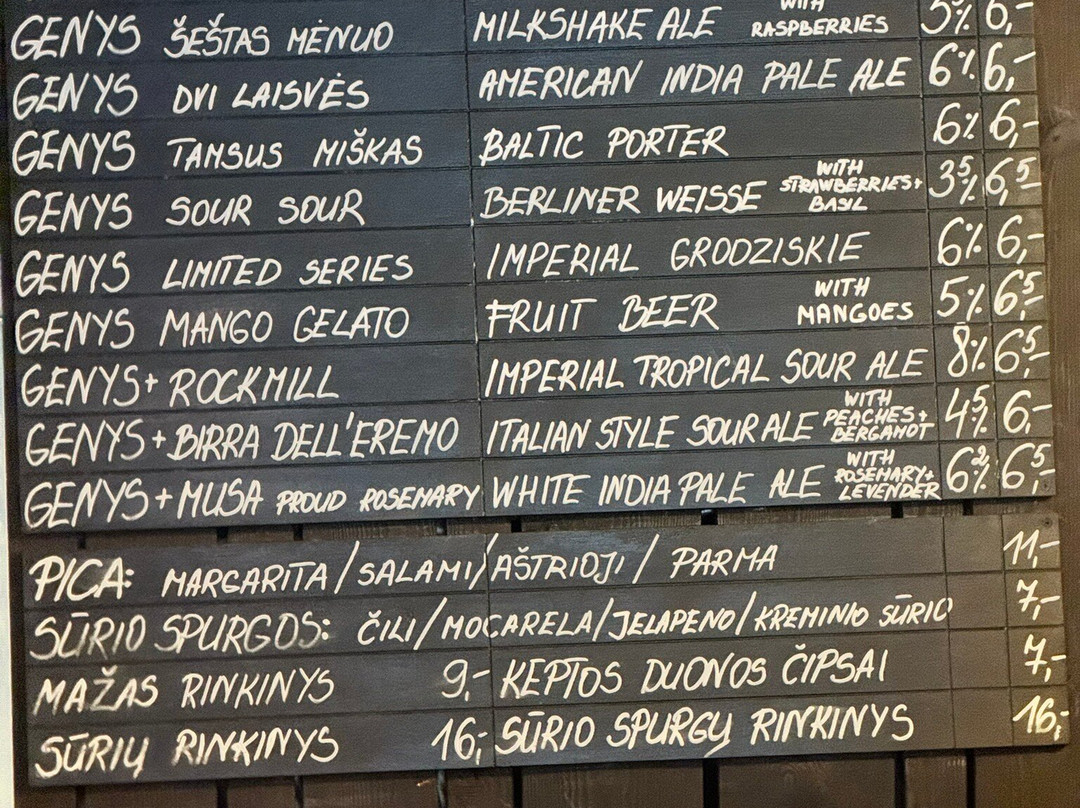 GENYS ŠEŠTAS MĖNUO MILKSHAKE ALE WITH RASPBERRIES 5% 6,-
GENYS DVI LAISVĖS AMERICAN INDIA PALE ALE 6% 6,-
GENYS TAMSUS MIŠKAS BALTIC PORTER 6% 6,-
GENYS SOUR SOUR BERLINER WEISSE WITH STRAWBERRIES+ BASIL 3,5% 6,5-
GENYS LIMITED SERIES IMPERIAL GRODZISKIE 6% 6,-
GENYS MANGO GELATO FRUIT BEER WITH MANGOES 5% 6,5-
GENYS+ ROCKMILL IMPERIAL TROPICAL SOUR ALE 8% 6,5-
GENYS+BIRRA DELL'EREMO ITALIAN STYLE SOUR ALE WITH PEACHES+ BERGAMOT 4,5% 6,-
GENYS+MUSA PROUD ROSEMARY WHITE INDIA PALE ALE WITH ROSEMARY+ LEVENDER 6,2% 6,5-
PICA: MARGARITA/SALAMI/AŠTRIOJI/ PARMA 11,-
SŪRIO SPURGOS: ČILI/MOCARELA/JELAPENO/KREMINIO SŪRIO 7,-
MAŽAS RINKINYS 9,- KEPTOS DUONOS ČIPSAI 7,-
SŪRIŲ RINKINYS 16,- SŪRIO SPURGŲ RINKINYS 16,-